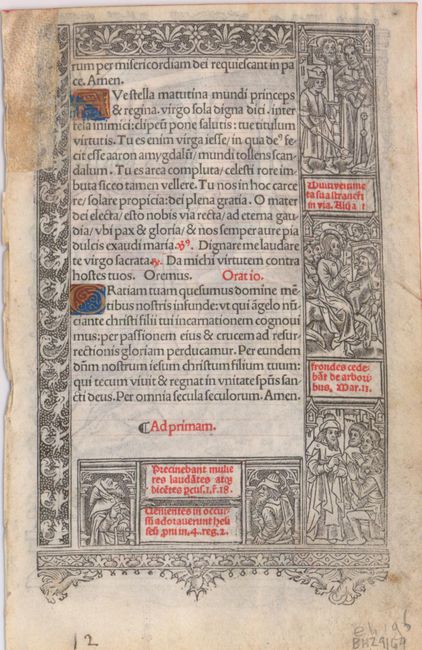 rum per misericordiam dei requiescant in pa
ce. Amen.
AVe stella matutina mundi princeps
& regina. virgo sola digna dici. inter
tela inimici: clipeũ pone salutis: tue titulum
virtutis. Tu es enim virga iesse/ in qua deꝰ fe
cit esse aaron amygdalũ/ mundi tollens scan
dalum. Tu es area compluta/ celesti rore im
buta sicco tamen vellere. Tu nos in hoc carce
re/ solare propicia: dei plena gratia. O mater
dei electa/ esto nobis via recta/ ad eterna gau
dia/ vbi pax & gloria/ & nos semper aure pia
dulcis exaudi maria. ℣ꝰ. Dignare me laudare
te virgo sacrata. ℟. Da michi virtutem contra
hostes tuos. Oremus. Oratio.
GRatiam tuam quesumus domine mẽ
tibus nostris infunde: vt qui ãgelo nũ
ciante christi filii tui incarnationem cognoui
mus: per passionem eius & crucem ad resur
rectionis gloriam perducamur. Per eundem
dñm nostrum iesum christum filium tuum:
qui tecum viuit & regnat in vnitate spũs san
cti deus. Per omnia secula seculorum. Amen.
¶Ad primam.
ta sua strauerũt
in via.
frondes cede
bãt de arbori
bus. Mar. 11.
Precinebant mulie
res laudãtes atqꝫ
dicẽtes .1.r.18.
Uenientes in occur
sũ adorauerunt heli
in .4. reg. 2.
12
BH2916A